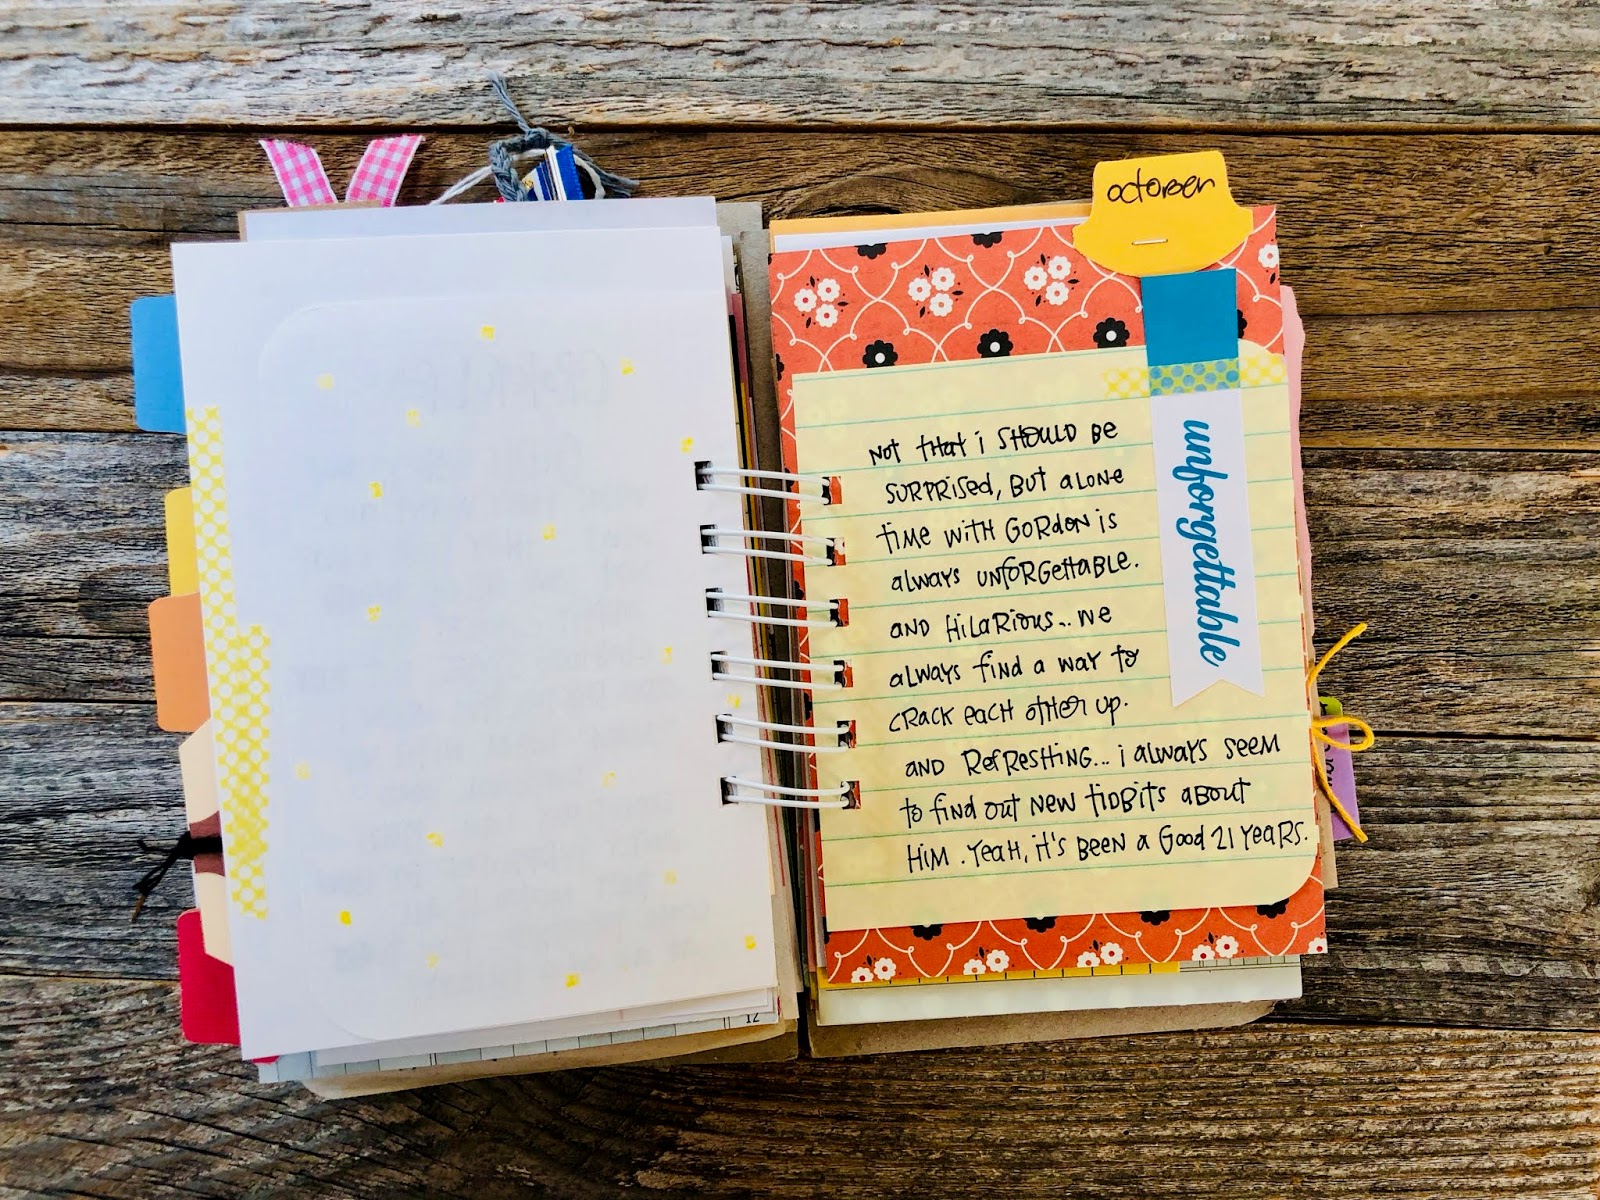 october
not that i should be
surprised, but alone
time with Gordon is
always unforgettable.
and hilarious... we
always find a way to
crack each other up.
and refreshing... i always seem
to find out new tidbits about
him. Yeah, it's been a good 21 years.
unforgettable
12